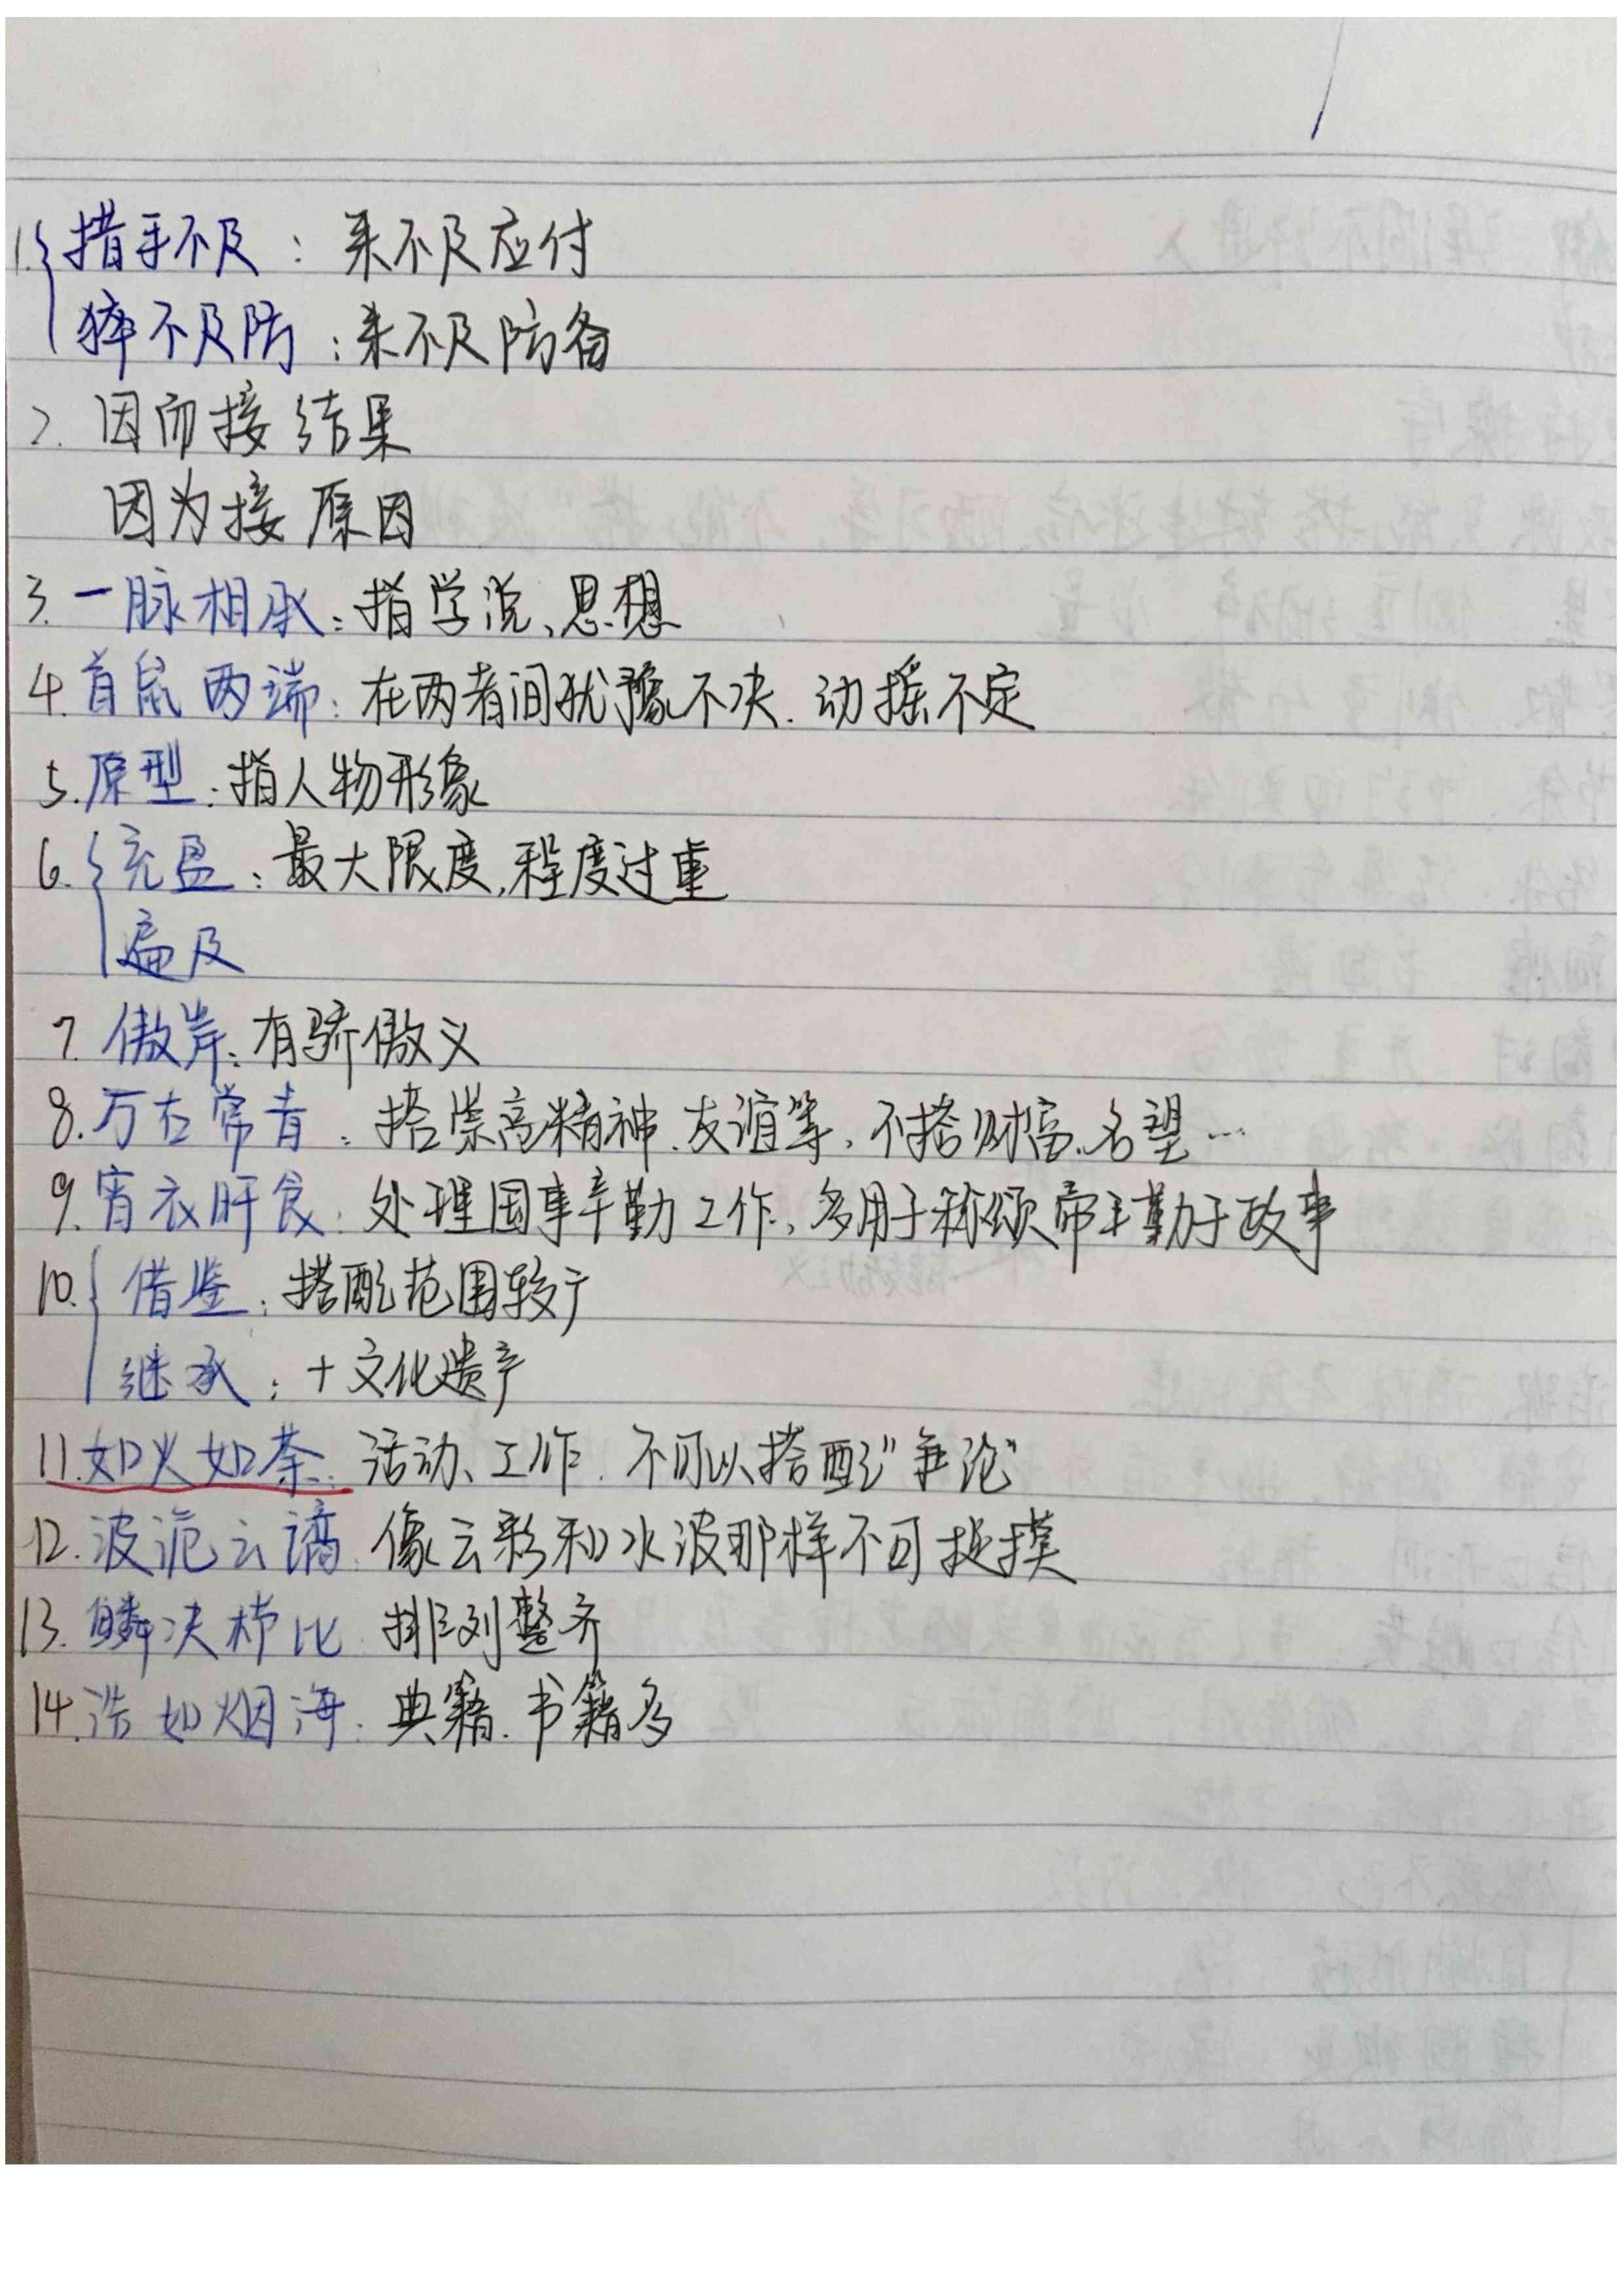 1. 措手不及：来不及应付
猝不及防：来不及防备
2. 因而接结果
因为接原因
3. 一脉相承：指学说、思想
4. 首鼠两端：在两者间犹豫不决．动摇不定
5. 原型：指人物形象
6. 充盈：最大限度，程度过重
遍及
7. 傲岸：有骄傲义
8. 万古常青：搭崇高精神、友谊等，不搭财富、名望…
9. 宵衣旰食：处理国事辛勤工作，多用于称颂帝王勤于政事
10. 借鉴：搭配范围较广
继承：+文化遗产
11. 如火如荼：活动、工作．不可以搭配"争论"
12. 波诡云谲 像云彩和水波那样不可捉摸
13. 鳞次栉比 排列整齐
14. 浩如烟海：典籍．书籍多